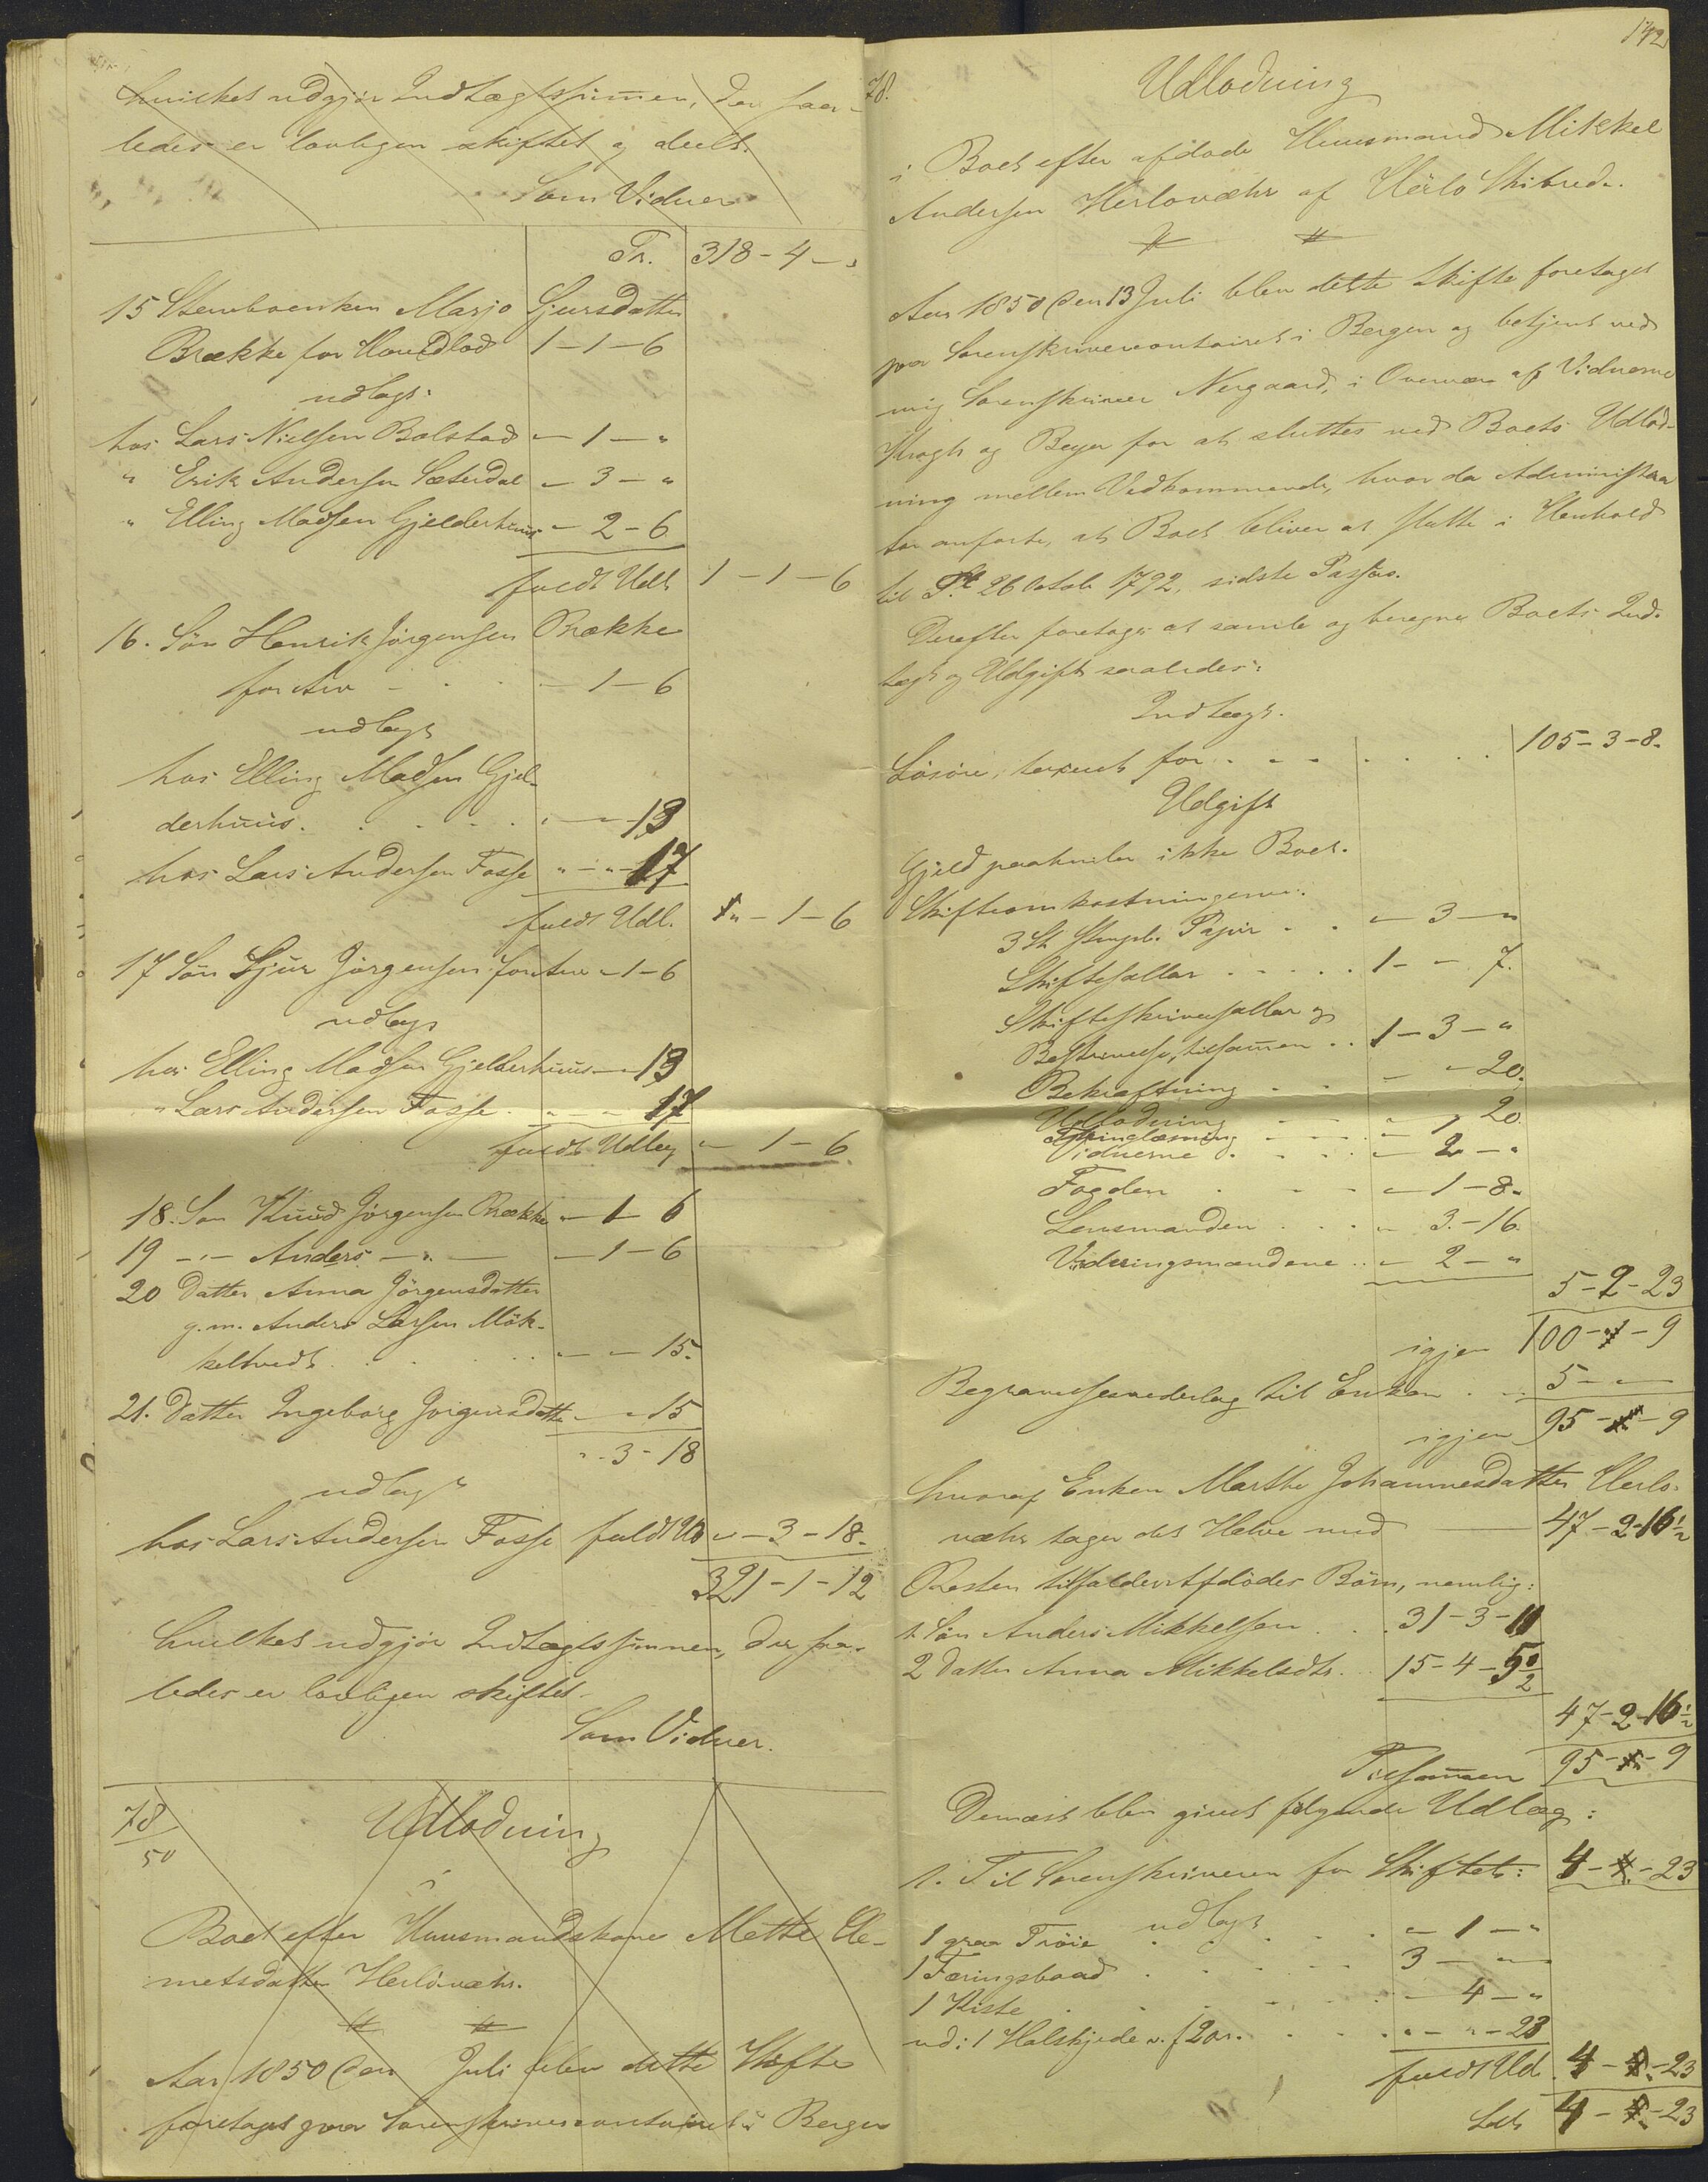 hvilket udgjør Indtægtssummen, der saa-
ledes er lovligen skiftet og deelt.
Som Vidner
Tr. 318-4-"
15 Stervboenken Marjo Sjursdatter
Brække for Hovedlod 1-1-6
udlagt:
hos Lars Nielsen Bolstad "-1-"
" Erik Andersen Sæterdal "-3-"
" Elling Madsen Gjelderhuus "-2-6
fuldt Udl. 1-1-6
16. Søn Henrik Jørgensen Brække
for Arv - - -1-6
udlagt
hos Elling Madsen Gjel-
derhuus. "-"-13
hos Lars Andersen Fosse "-"-17
fuldt Udl. "-1-6
17 Søn Sjur Jørgensen for Arv "-1-6
udlagt
hos Elling Madsen Gjelderhuus "-13
" Lars Andersen Fosse. "-"-17
fuldt Udlæg "-1-6
18. Søn Knud Jørgensen Brække "-1-6
19 -"- Anders -"- -1-6
20 Datter Anna Jørgensdatter
g. m. Anders Larsen Mök-
keltvedt. "-"-15.
21. Datter Ingeborg Jørgensdatter "-"-15
"-3-18
udlagt
hos Lars Andersen Fosse fuldt Ud "-3-18.
321-1-12
hvilket udgjør Indtægtssummen, der saa-
ledes er lovligen skiftet-
Som Vidner.
78/50
Udlodning
i
Boet efter Huusmandskone Mette Cle-
metsdatter Herløvæhr.
Aar 1850 den Juli blev dette Skifte
foretaget paa Sorenskrivercontoiret i Bergen
142
78.
Udlodning
i Boet efter afdøde Huusmand Mikkel
Andersen Herlovæhr af Herlö Skibrede.
Aar 1850 den 13 Juli blev dette Skifte foretaget
paa Sorenskrivercontoiret i Bergen og betjent ved
mig Sorenskriver Nergaard, i Overvær af Vidnerne
Krogh og Beyer for at sluttes ved Boets Udlod-
ning mellem Vedkommende, hvor da Administra
tor anførte, at Boet bliver at slutte i Henhold
til Pl. 26 Octob 1792, sidste Passus.
Derefter foretoges at samle og beregne Boets Ind-
tægt og Udgift saaledes:
Indtægt.
Løsøre, taxeret for . . . 105-3-8.
Udgift
Gjeld paahviler ikke Boet.
Skifteomkostningerne:
3 St. Stempl. Papir . . "-3-"
Skiftesallar . . . . . 1-"-7.
Skifteskriversallar og
Beskrivelse, tilsammen . . 1-3-"
Bekræftning . . "-"-20.
Udlodning . . "-"-20
Thinglæsning
Vidnerne . . . . "-2-"
Fogden . . . "-1-8.
Lensmanden . . . "-3-16.
Vurderingsmændene . . "-2-"
5-2-23
igjen 100-"-9
Begravelsesvederlag til Enken . . . 5-"-"
igjen 95-"-9
hvoraf Enken Marthe Johannesdatter Herlo-
væhr tager det Halve med 47-2-16½
Resten tilfalder Afdødes Børn, nemlig:
1. Søn Anders Mikkelsen . . . 31-3-11
2 Datter Anna Mikkelsdtr. . . 15-4-5½
47-2-16½
Tilsammen 95-"-9
Dernæst blev givet følgende Udlæg:
1. Til Sorenskriveren for Skiftet: 4-"-23
udlagt
1 graa Trøie . . . . "-1-"
1 Færingsbaad . . . . . 3-"-"
1 Kiste . . . . . "-4-"
ud: 1 Halskjede v. f 20r. . . . "-"-23
fuldt Udl. 4-"-23
Ldt 4-"-23